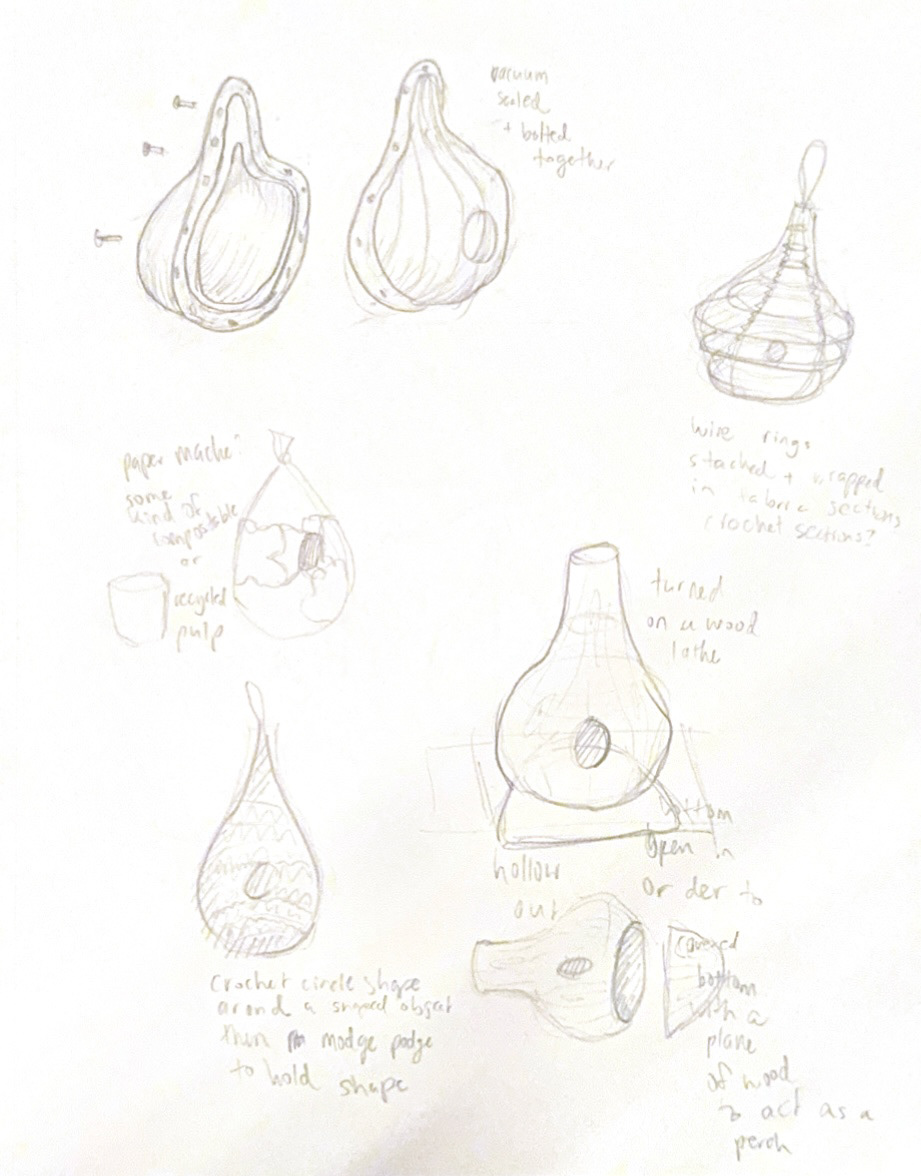 vacuum
sealed
+ bolted
together
wire rings
stacked + wrapped
in fabric sections
crochet sections?
paper mache?
some
kind of
compostable
or
recycled
pulp
turned
on a wood
lathe
hollow
out
bottom
open in
order to
covered
bottom
with a
plane
of wood
to act as a
perch
crochet circle shape
around a shaped object
then modge podge
to hold shape